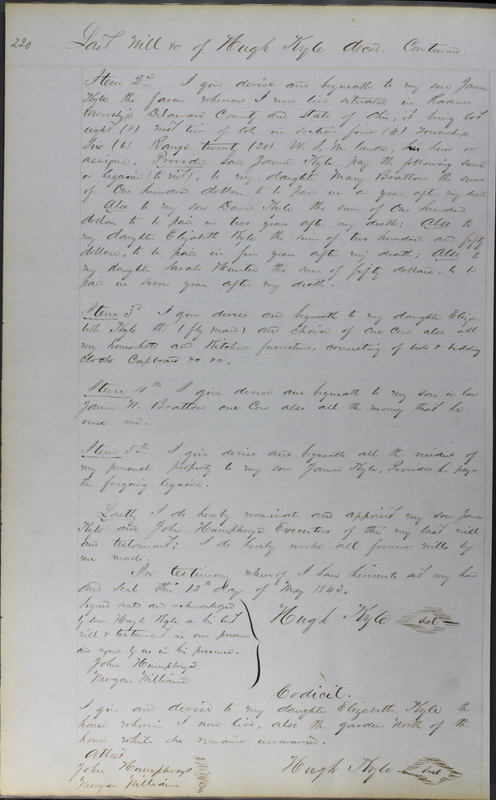 220
Last Will &c of Hugh Kyle decd. Continued
Item 2nd I give devise and bequeath to my son James
Kyle the farm whereon I now live situated in Radnor
township Delaware County and State of Ohio, it being lot
eight (8) tier of lots in section four (4) Township
Six (6) Range twenty (20) W. S. M. lands, his heirs or
assigns. Provided said James Kyle pay the following sums
or legacies (to wit), to my daughter Mary Bratton the sum
of One hundred dollars to be paid in a year after my death
Also to my son David Kyle the sum of One hundred
dollars to be paid in two years after my death; Also to
my daughter Elizabeth Kyle the sum of two hundred and fifty
dollars, to be paid in five years after my death; Also to
my daughter Sarah Hunter the sum of fifty dollars, to be
paid in seven years after my death.
Item 3d I give devise and bequeath to my daughter Eliza
beth Kyle the (fly mare) and choice of One Cow also all
my household and Kitchen furniture, consisting of beds & bedding
Clock Cupboard &c &c.
Item 4th I give devise and bequeath to my son in law
James W. Bratton one Cow also all the money that he
owes me.
Item 5th I give devise and bequeath all the residue of
my personal property to my son James Kyle, Provided he pays
the forgoing legacies.
Lastly I do hereby nominate and appoint my son James
Kyle and John Humphreys Executors of this my last will
and testament; I do hereby revoke all former wills by
me made
In testimony whereof I have hereunto set my hand
and seal this 12th day of May 1843.
Signed sealed and acknowledged
by said Hugh Kyle as his last
will & testament in our presence
and signed by us in his presence.
Hugh Kyle seal
John Humphreys
Morgan Williams
Codicil.
I give and devise to my daughter Elizabeth Kyle the
house wherein I now live, also the garden North of the
house while she remains unmarried.
Attest
Hugh Kyle seal
John Humphreys
Morgan Williams